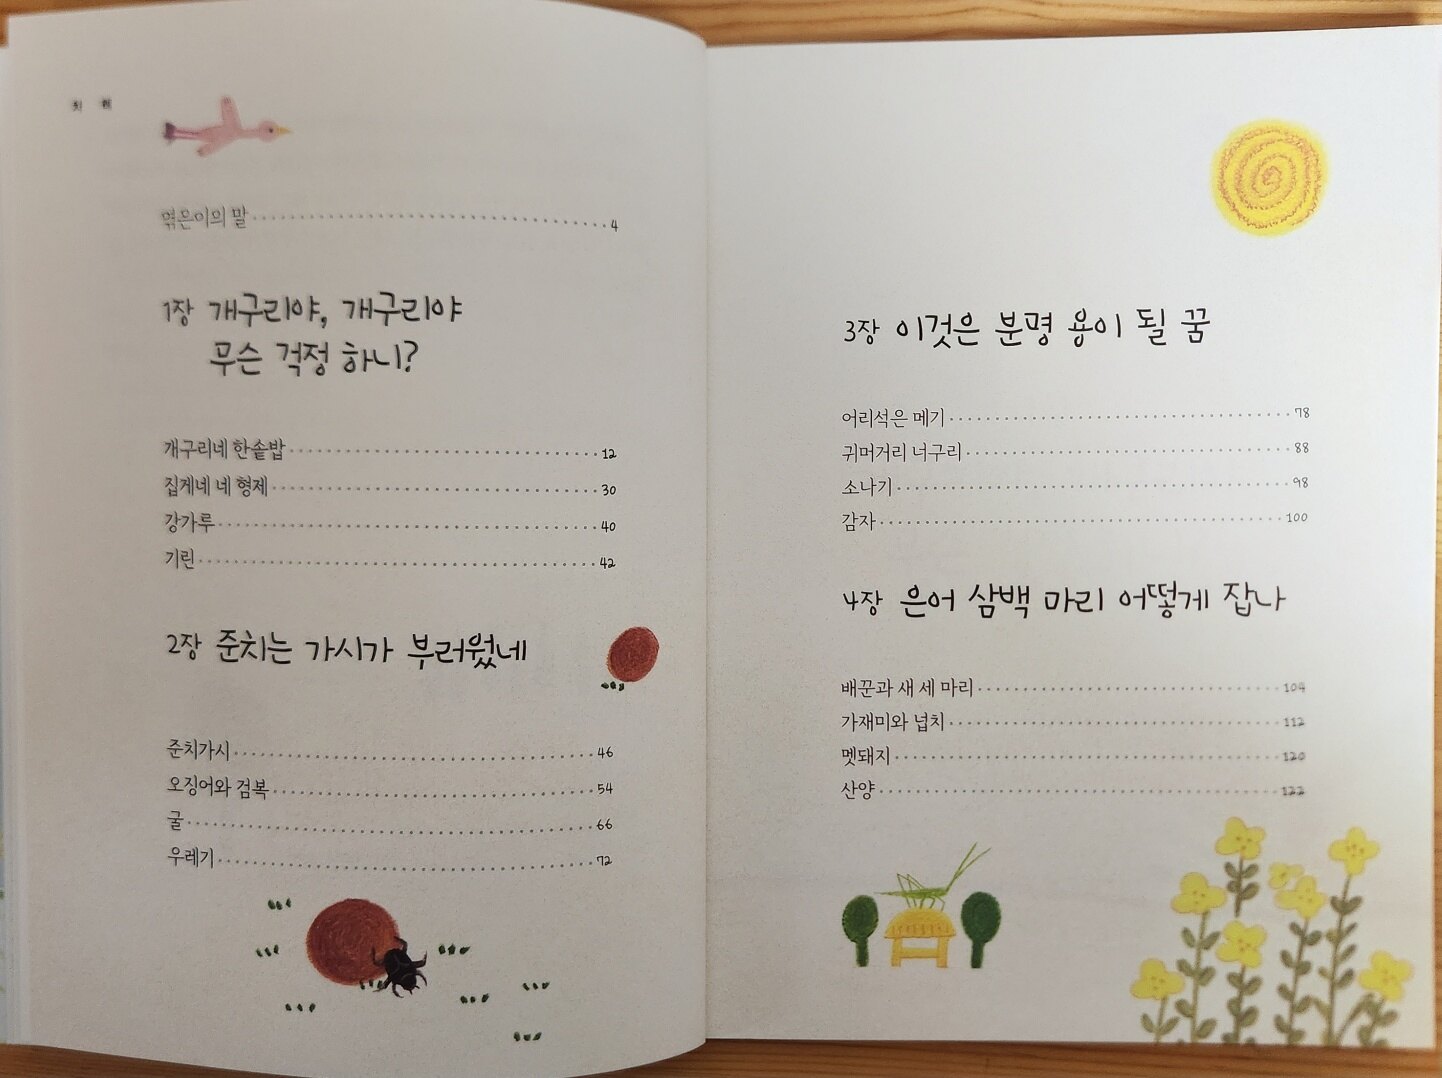 엮은이의 말 4
1장 개구리야, 개구리야
무슨 걱정 하니?
개구리네 한솥밥 12
집게네 네 형제 30
강가루 40
기린 42
2장 준치는 가시가 부러웠네
준치가시 46
오징어와 검복 54
굴 66
우레기 72
3장 이것은 분명 용이 될 꿈
어리석은 메기 78
귀머거리 너구리 88
소나기 98
감자 100
4장 은어 삼백 마리 어떻게 잡나
배꾼과 새 세 마리 104
가재미와 넙치 112
멧돼지 120
산양 122